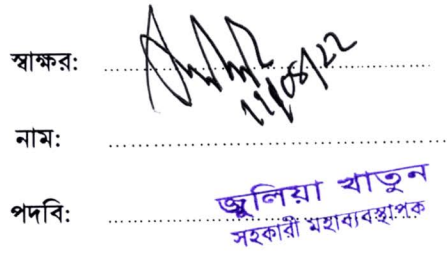 স্বাক্ষর: ........................................
22/08/22
নাম: ........................................
পদবি: ........................................
জুলিয়া খাতুন
সহকারী মহাব্যবস্থাপক